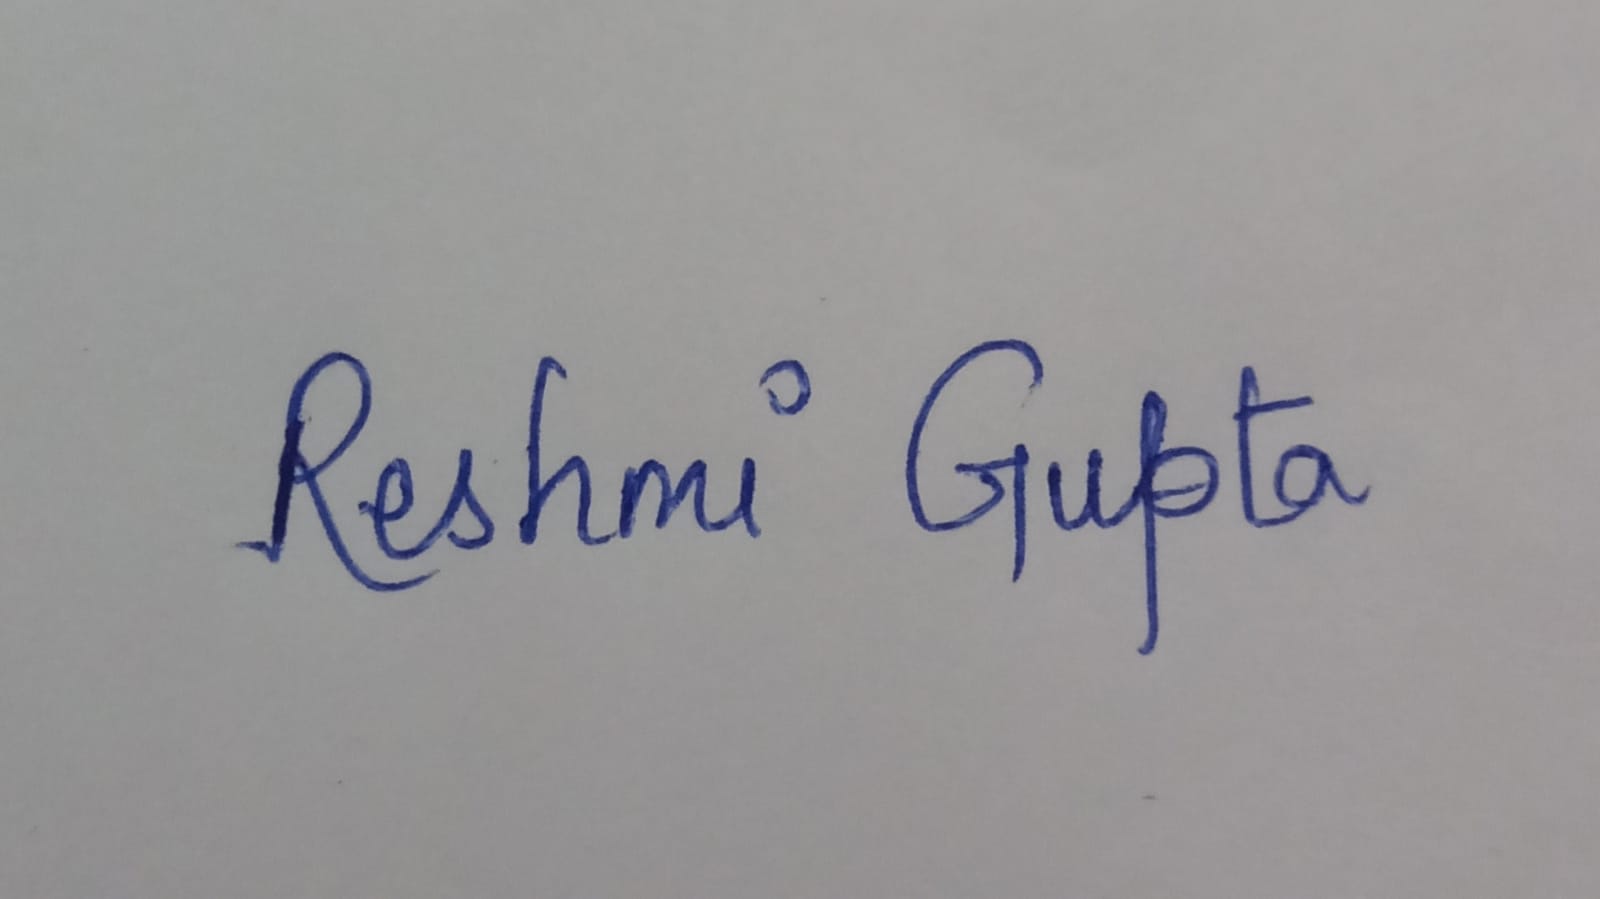 Reshmi Gupta